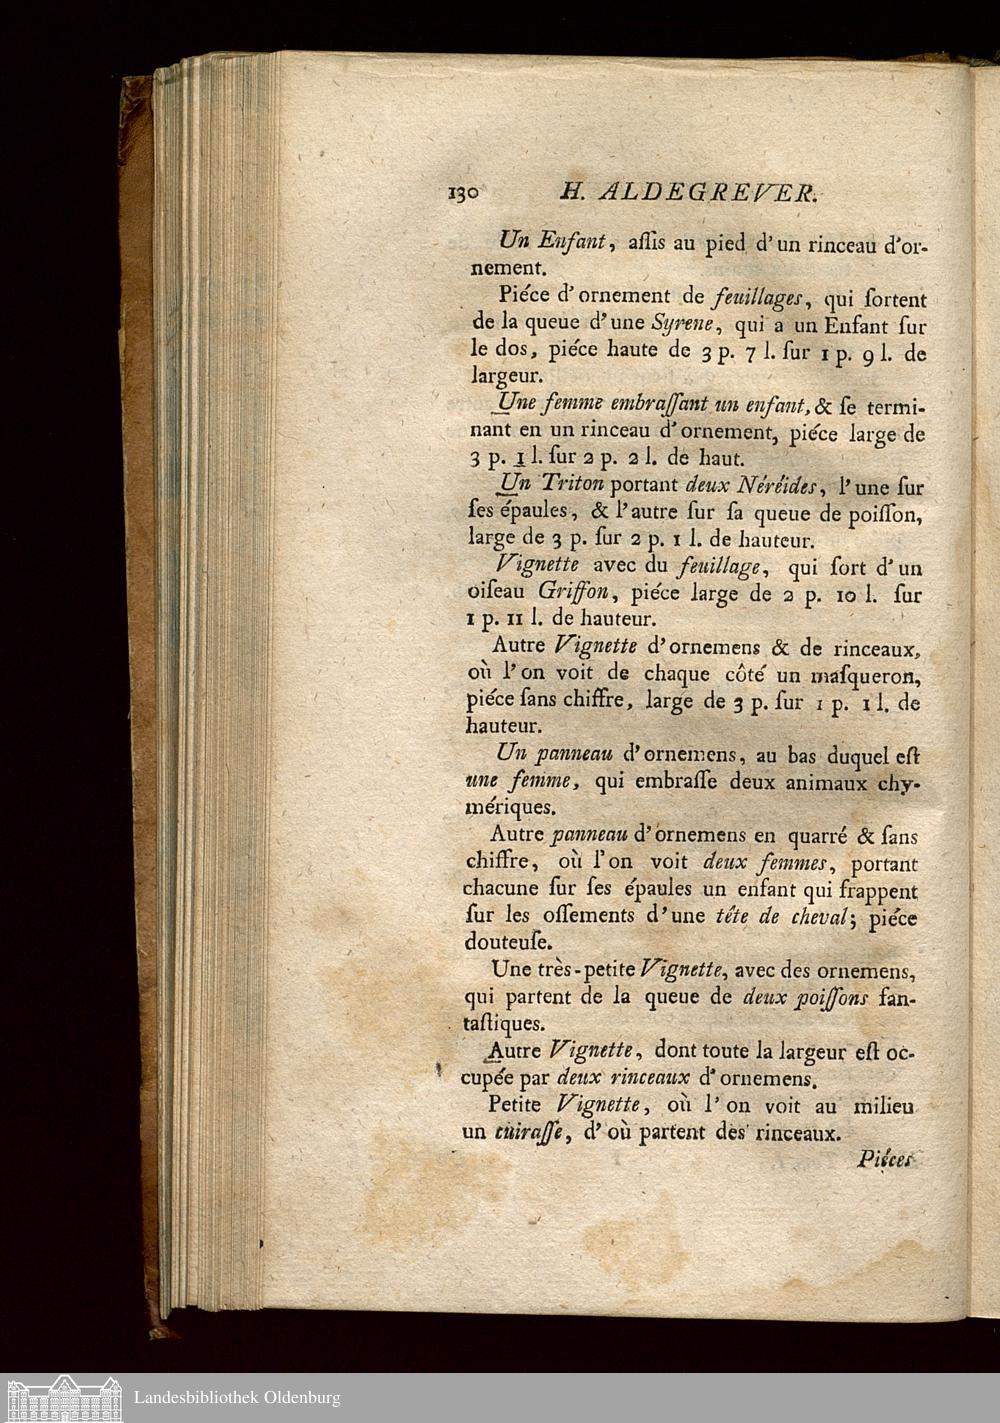 130 H. ALDEGREVER.
Un Enfant, aſſis au pied d'un rinceau d'or-
nement.
Piéce d'ornement de feuillages, qui ſortent
de la queue d'une Syrene, qui a un Enfant ſur
le dos, piéce haute de 3 p. 7 l. ſur 1 p. 9 l. de
largeur.
Une femme embraſſant un enfant, & ſe termi-
nant en un rinceau d'ornement, piéce large de
3 p. 1 l. ſur 2 p. 2 l. de haut.
Un Triton portant deux Néréides, l'une ſur
ſes épaules, & l'autre ſur ſa queue de poiſſon,
large de 3 p. ſur 2 p. 1 l. de hauteur.
Vignette avec du feuillage, qui ſort d'un
oiſeau Griffon, piéce large de 2 p. 10 l. ſur
1 p. 11 l. de hauteur.
Autre Vignette d'ornemens & de rinceaux,
où l'on voit de chaque côté un maſqueron,
piéce ſans chiffre, large de 3 p. ſur 1 p. 1 l. de
hauteur.
Un panneau d'ornemens, au bas duquel eſt
une femme, qui embraſſe deux animaux chy-
mériques.
Autre panneau d'ornemens en quarré & ſans
chiffre, où l'on voit deux femmes, portant
chacune ſur ſes épaules un enfant qui frappent
ſur les oſſements d'une tête de cheval; piéce
douteuſe.
Une très-petite Vignette, avec des ornemens,
qui partent de la queue de deux poiſſons fan-
taſtiques.
Autre Vignette, dont toute la largeur eſt oc-
cupée par deux rinceaux d'ornemens.
Petite Vignette, où l'on voit au milieu
un cuiraſſe, d'où partent des rinceaux.
Piéces
Landesbibliothek Oldenburg